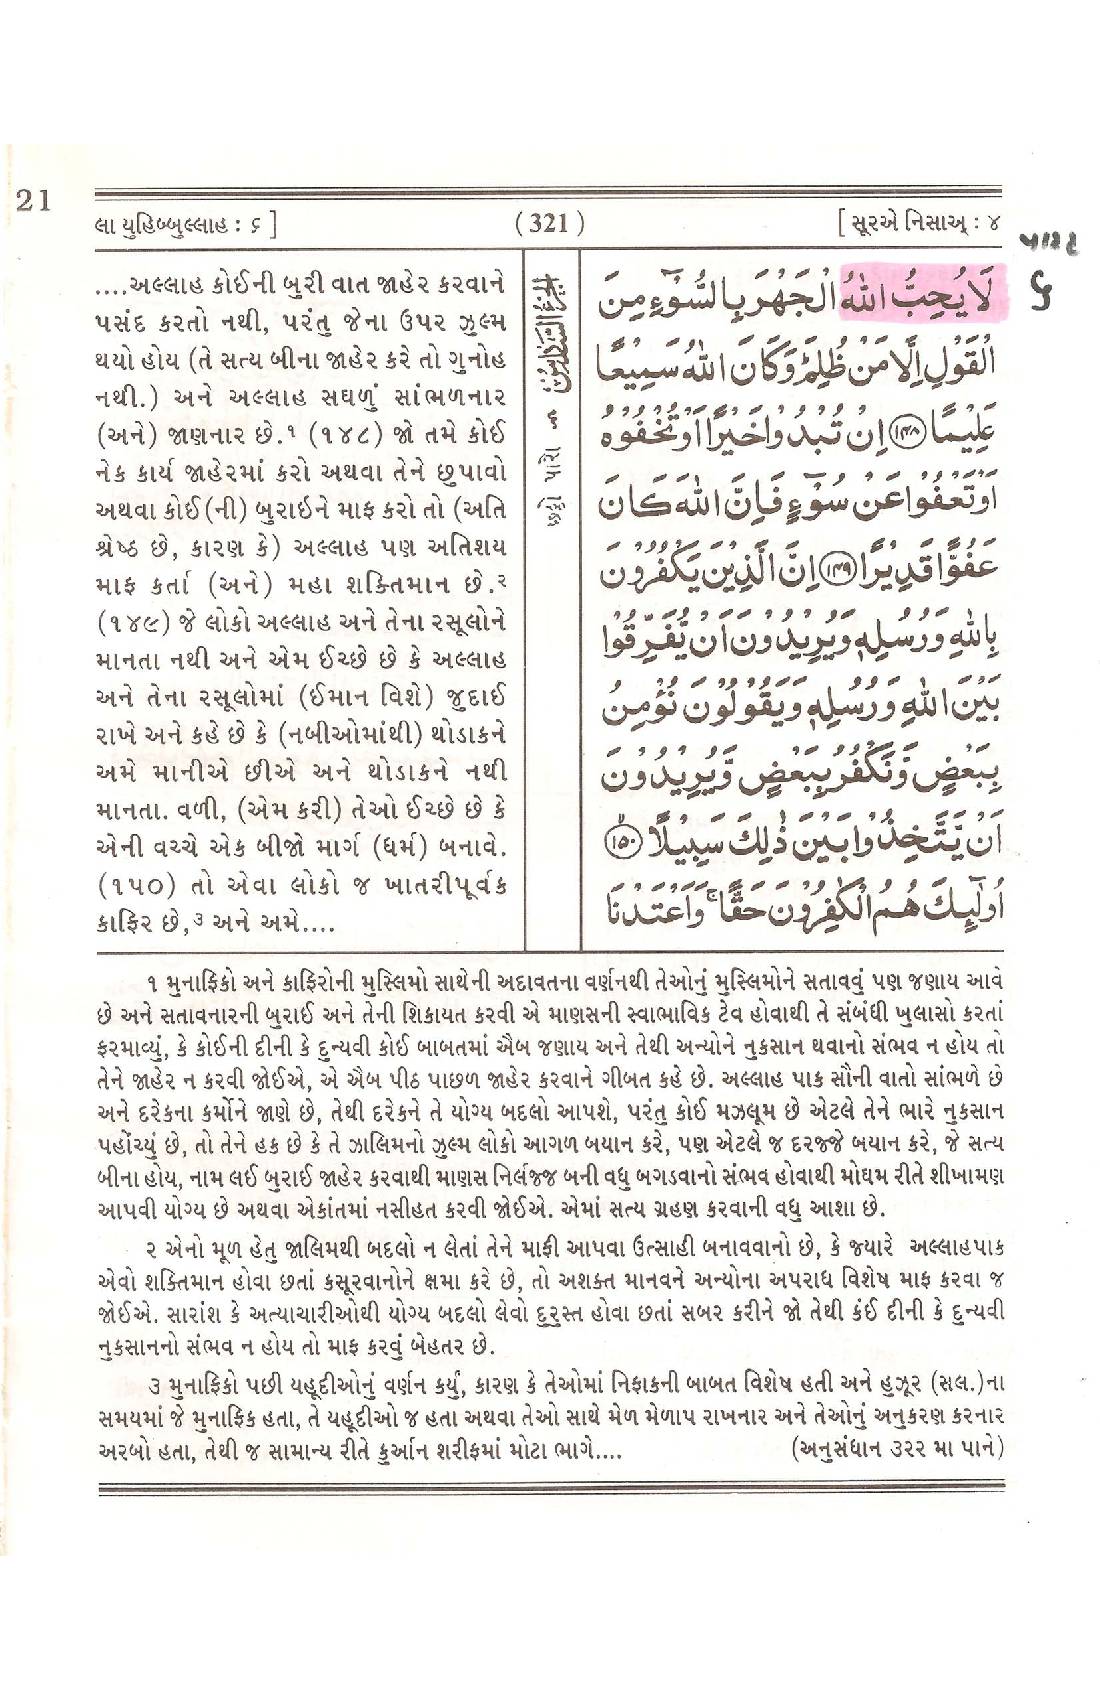 21
લા યુહિબ્બુલ્લાહ : ૬ ]
( 321 )
[ સૂરએ નિસાઅ્ : ૪
પારહ
૬
....અલ્લાહ કોઈની બુરી વાત જાહેર કરવાને
પસંદ કરતો નથી, પરંતુ જેના ઉપર ઝુલ્મ
થયો હોય (તે સત્ય બીના જાહેર કરે તો ગુનોહ
નથી.) અને અલ્લાહ સઘળું સાંભળનાર
(અને) જાણનાર છે.૧ (૧૪૮) જો તમે કોઈ
નેક કાર્ય જાહેરમાં કરો અથવા તેને છુપાવો
અથવા કોઈ(ની) બુરાઇને માફ કરો તો (અતિ
શ્રેષ્ઠ છે, કારણ કે) અલ્લાહ પણ અતિશય
માફ કર્તા (અને) મહા શક્તિમાન છે.૨
(૧૪૯) જે લોકો અલ્લાહ અને તેના રસૂલોને
માનતા નથી અને એમ ઈચ્છે છે કે અલ્લાહ
અને તેના રસૂલોમાં (ઈમાન વિશે) જુદાઈ
રાખે અને કહે છે કે (નબીઓમાંથી) થોડાકને
અમે માનીએ છીએ અને થોડાકને નથી
માનતા. વળી, (એમ કરી) તેઓ ઈચ્છે છે કે
એની વચ્ચે એક બીજો માર્ગ (ધર્મ) બનાવે.
(૧૫૦) તો એવા લોકો જ ખાતરીપૂર્વક
કાફિર છે,૩ અને અમે....
الجزء السادس ٦
છઠ્ઠો પારો
لَا يُحِبُّ اللّٰهُ الْجَهْرَ بِالسُّوْٓءِ مِنَ
الْقَوْلِ اِلَّا مَنْ ظُلِمَ ؕ وَكَانَ اللّٰهُ سَمِيْعًا
عَلِيْمًا ﴿۱۴۸﴾ اِنْ تُبْدُوْا خَيْرًا اَوْ تُخْفُوْهُ
اَوْ تَعْفُوْا عَنْ سُوْٓءٍ فَاِنَّ اللّٰهَ كَانَ
عَفُوًّا قَدِيْرًا ﴿۱۴۹﴾ اِنَّ الَّذِيْنَ يَكْفُرُوْنَ
بِاللّٰهِ وَرُسُلِهٖ وَيُرِيْدُوْنَ اَنْ يُّفَرِّقُوْا
بَيْنَ اللّٰهِ وَرُسُلِهٖ وَيَقُوْلُوْنَ نُؤْمِنُ
بِبَعْضٍ وَّنَكْفُرُ بِبَعْضٍ وَّيُرِيْدُوْنَ
اَنْ يَّتَّخِذُوْا بَيْنَ ذٰلِكَ سَبِيْلًا ﴿۱۵۰﴾
اُولٰٓئِكَ هُمُ الْكٰفِرُوْنَ حَقًّا ۚ وَاَعْتَدْنَا
૧ મુનાફિકો અને કાફિરોની મુસ્લિમો સાથેની અદાવતના વર્ણનથી તેઓનું મુસ્લિમોને સતાવવું પણ જણાય આવે
છે અને સતાવનારની બુરાઈ અને તેની શિકાયત કરવી એ માણસની સ્વાભાવિક ટેવ હોવાથી તે સંબંધી ખુલાસો કરતાં
ફરમાવ્યું, કે કોઈની દીની કે દુન્યવી કોઈ બાબતમાં ઐબ જણાય અને તેથી અન્યોને નુકસાન થવાનો સંભવ ન હોય તો
તેને જાહેર ન કરવી જોઈએ, એ ઐબ પીઠ પાછળ જાહેર કરવાને ગીબત કહે છે. અલ્લાહ પાક સૌની વાતો સાંભળે છે
અને દરેકના કર્મોને જાણે છે, તેથી દરેકને તે યોગ્ય બદલો આપશે, પરંતુ કોઈ મઝલૂમ છે એટલે તેને ભારે નુકસાન
પહોંચ્યું છે, તો તેને હક છે કે તે ઝાલિમનો ઝુલ્મ લોકો આગળ બયાન કરે, પણ એટલે જ દરજ્જે બયાન કરે, જે સત્ય
બીના હોય, નામ લઈ બુરાઈ જાહેર કરવાથી માણસ નિર્લજ્જ બની વધુ બગડવાનો સંભવ હોવાથી મોઘમ રીતે શીખામણ
આપવી યોગ્ય છે અથવા એકાંતમાં નસીહત કરવી જોઈએ. એમાં સત્ય ગ્રહણ કરવાની વધુ આશા છે.
૨ એનો મૂળ હેતુ જાલિમથી બદલો ન લેતાં તેને માફી આપવા ઉત્સાહી બનાવવાનો છે, કે જ્યારે અલ્લાહપાક
એવો શક્તિમાન હોવા છતાં કસૂરવાનોને ક્ષમા કરે છે, તો અશક્ત માનવને અન્યોના અપરાધ વિશેષ માફ કરવા જ
જોઈએ. સારાંશ કે અત્યાચારીઓથી યોગ્ય બદલો લેવો દુરુસ્ત હોવા છતાં સબર કરીને જો તેથી કંઈ દીની કે દુન્યવી
નુકસાનનો સંભવ ન હોય તો માફ કરવું બેહતર છે.
૩ મુનાફિકો પછી યહૂદીઓનું વર્ણન કર્યું, કારણ કે તેઓમાં નિફાકની બાબત વિશેષ હતી અને હુઝૂર (સલ.)ના
સમયમાં જે મુનાફિક હતા, તે યહૂદીઓ જ હતા અથવા તેઓ સાથે મેળ મેળાપ રાખનાર અને તેઓનું અનુકરણ કરનાર
અરબો હતા, તેથી જ સામાન્ય રીતે કુર્આન શરીફમાં મોટા ભાગે.... (અનુસંધાન ૩૨૨ મા પાને)